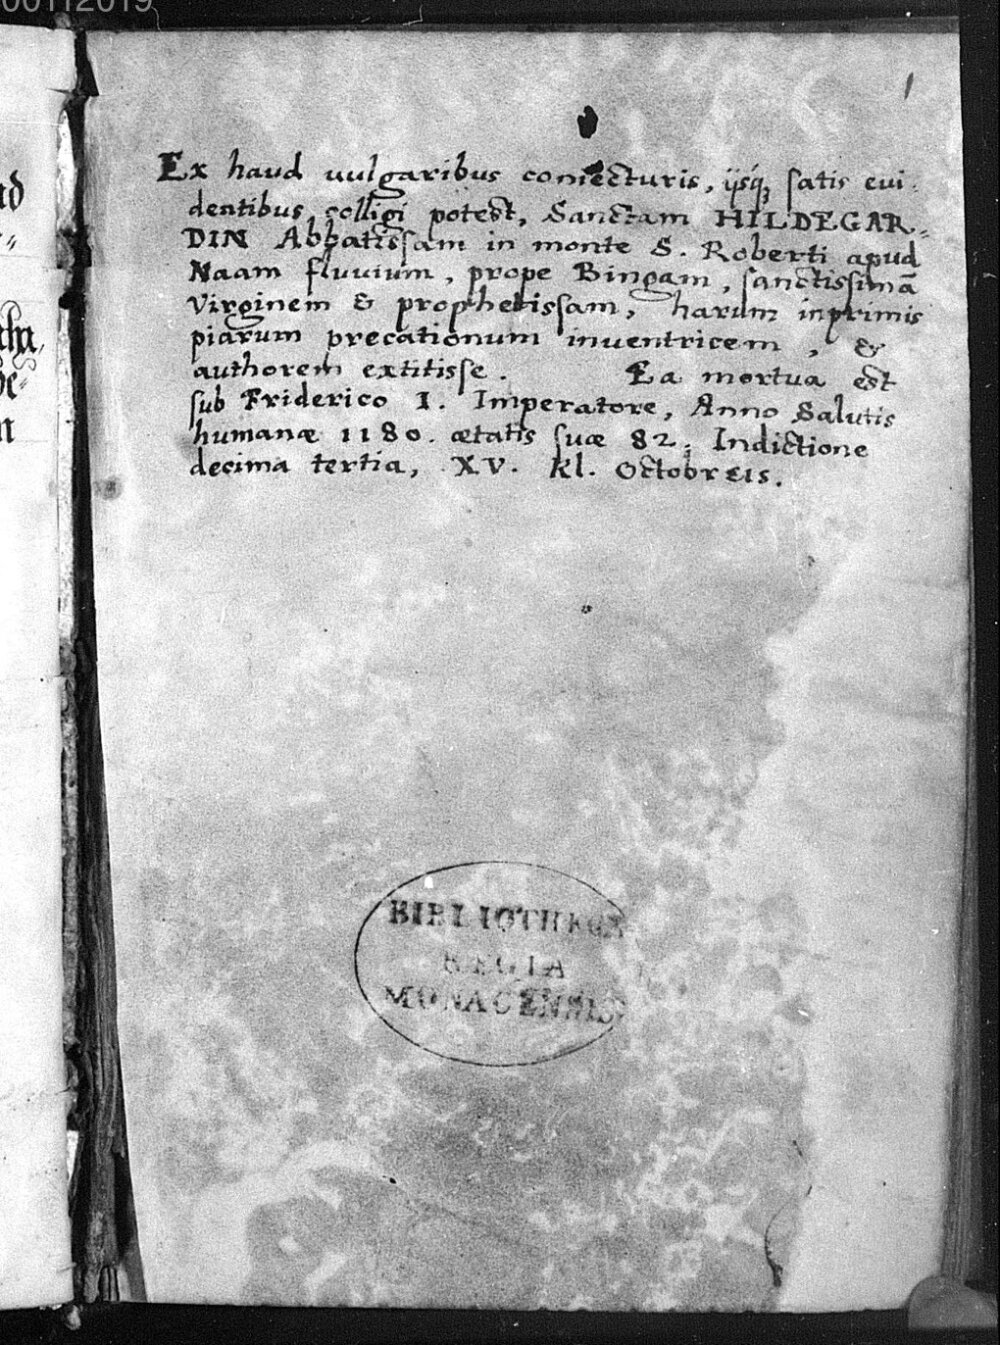 00112019
1
Ex haud uulgaribus coniecturis, ijsq; satis eui-
dentibus colligi potest, Sanctam HILDEGAR-
DIN Abbatissam in monte S. Roberti apud
Naam fluuium, prope Bingam, sanctissimā
Virginem & prophetissam, harum inprimis
piarum precationum inuentricem, &
authorem extitisse. Ea mortua est
sub Friderico I. Imperatore, Anno Salutis
humanæ 1180. ætatis suæ 82. Indictione
decima tertia, XV. kl. Octobreis.
BIBLIOTHECA
REGIA
MONACENSIS